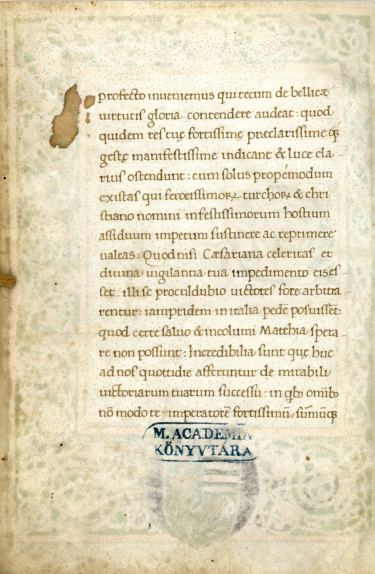 profecto inueniemus qui tecum de bellicæ
uirtutis gloria contendere audeat: quod
quidem res tuę fortissimę preclarissimę qꝫ
gestę manifestissime indicant & luce cla-
rius ostendunt: cum solus propemodum
existas qui ferocissimoꝝ turchoꝝ & chri-
stiano nomini infestissimorum hostium
assiduum impetum sustinere ac reprimere
ualeas: Quod nisi Cæsariana celeritas et
diuina uigilantia tua impedimento eis es-
set illi se proculdubio uictores fore arbitra-
rentur: iampridem in italia pedē posuissēt:
quod certe saluo & incolumi Matthia spera-
re non possunt: Incredibilia sunt quę huc
ad nos quottidie afferuntur de mirabili
uictoriarum tuarum successu: in qbꝫ omībꝫ
nō modo te imperatorē fortissimū sūmūqꝫ
M. ACADEMIA
KÖNYVTÁRA